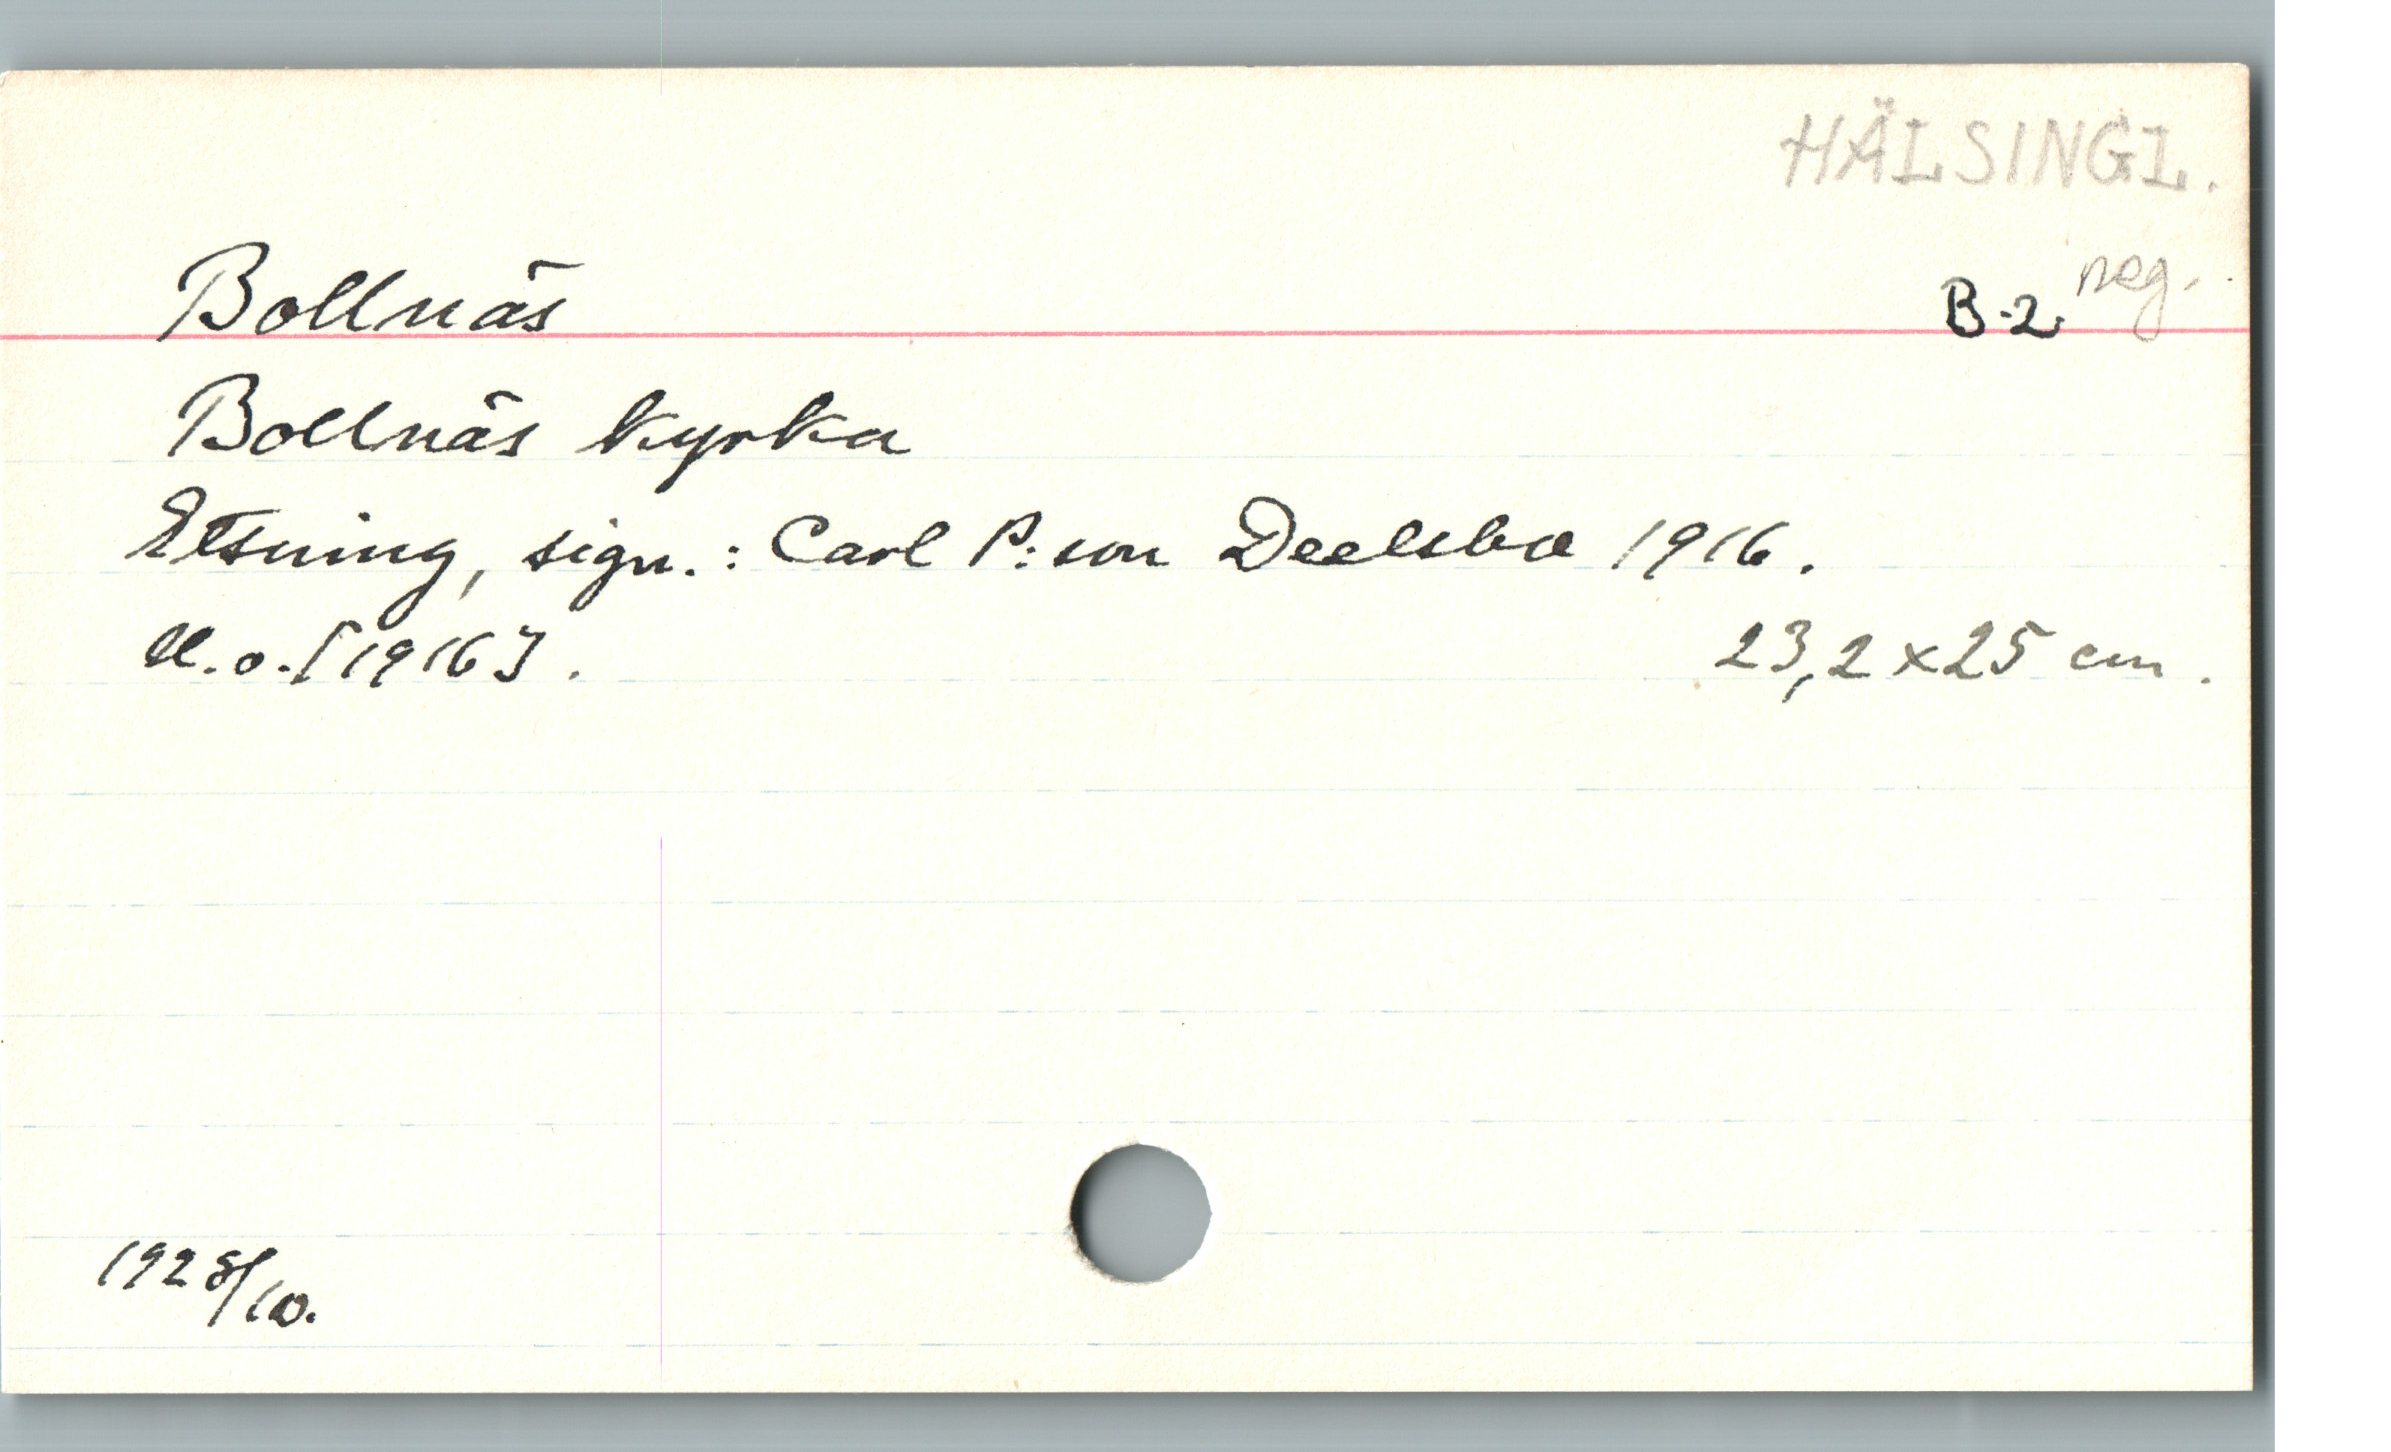 HÄLSINGL.
Bollnäs B-2. neg.
Bollnäs kyrka
Etsning, sign.: Carl P:son Deelsbo 1916.
U.o. [1916]. 23,2 x 25 cm.
1928/10.